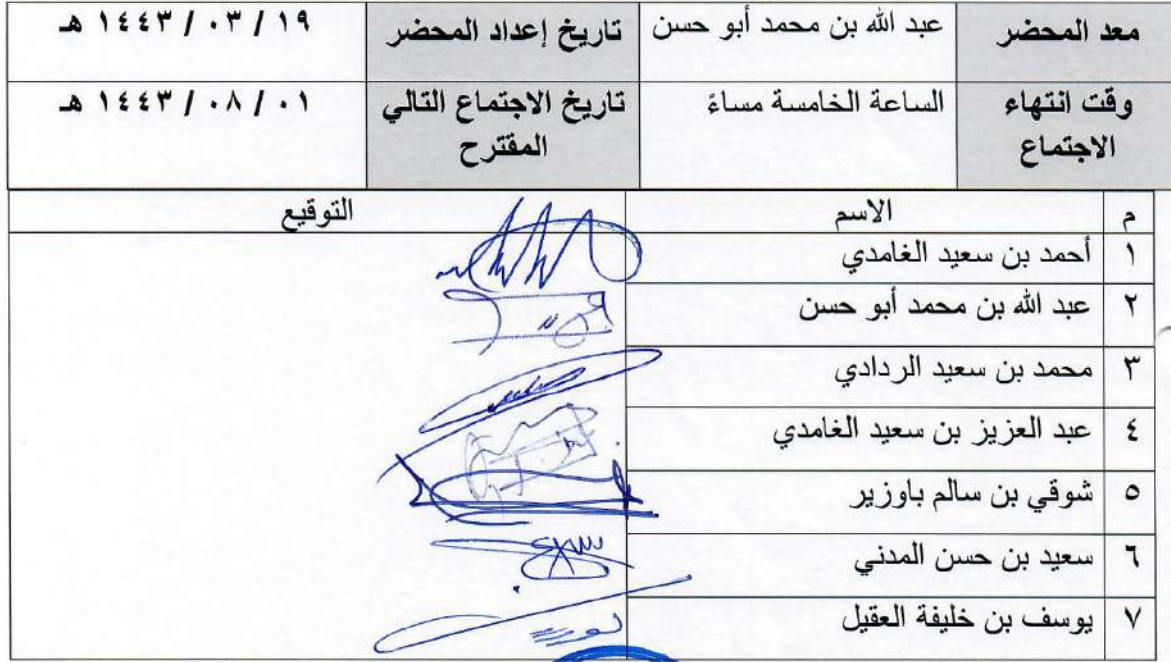 معد المحضر عبد الله بن محمد أبو حسن تاريخ إعداد المحضر ١٩ / ٠٣ / ١٤٤٣ هـ
وقت انتهاء الاجتماع الساعة الخامسة مساءً تاريخ الاجتماع التالي المقترح ٠١ / ٠٨ / ١٤٤٣ هـ
م الاسم التوقيع
١ أحمد بن سعيد الغامدي
٢ عبد الله بن محمد أبو حسن
٣ محمد بن سعيد الردادي
٤ عبد العزيز بن سعيد الغامدي
٥ شوقي بن سالم باوزير
٦ سعيد بن حسن المدني
٧ يوسف بن خليفة العقيل